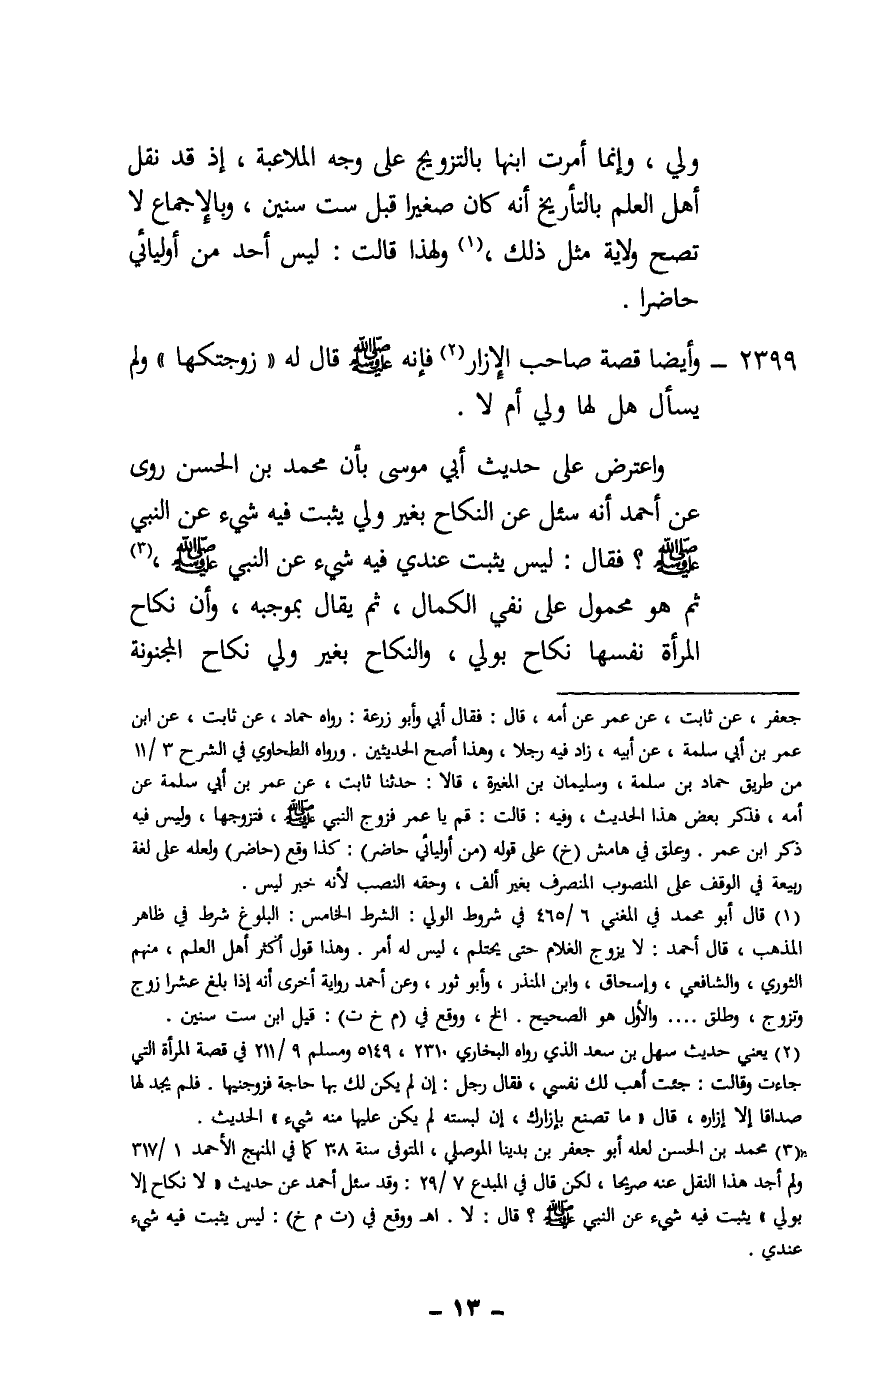 ولي ، وإنما أمرت ابنها بالتزويج على وجه الملاعبة ، إذ قد نقل
أهل العلم بالتأريخ أنه كان صغيرا قبل ست سنين ، وبالإجماع لا
تصح ولاية مثل ذلك ،(١) ولهذا قالت : ليس أحد من أوليائي
حاضرا .
٢٣٩٩ – وأيضا قصة صاحب الإزار(٢) فإنه ﷺ قال له « زوجتكها » ولم
يسأل هل لها ولي أم لا .
واعترض على حديث أبي موسى بأن محمد بن الحسن روى
عن أحمد أنه سئل عن النكاح بغير ولي يثبت فيه شيء عن النبي
ﷺ ؟ فقال : ليس يثبت عندي فيه شيء عن النبي ﷺ ،(٣)
ثم هو محمول على نفي الكمال ، ثم يقال بموجبه ، وأن نكاح
المرأة نفسها نكاح بولي ، والنكاح بغير ولي نكاح المجنونة
جعفر ، عن ثابت ، عن عمر عن أمه ، قال : فقال أبي وأبو زرعة : رواه حماد ، عن ثابت ، عن ابن
عمر بن أبي سلمة ، عن أبيه ، زاد فيه رجلا ، وهذا أصح الحديثين . ورواه الطحاوي في الشرح ٣ /١١
من طريق حماد بن سلمة ، وسليمان بن المغيرة ، قالا : حدثنا ثابت ، عن عمر بن أبي سلمة عن
أمه ، فذكر بعض هذا الحديث ، وفيه : قالت : قم يا عمر فزوج النبي ﷺ ، فتزوجها ، وليس فيه
ذكر ابن عمر . وعلق في هامش (خ) على قوله (من أوليائي حاضر) : كذا وقع (حاضر) ولعله على لغة
ربيعة في الوقف على المنصوب المنصرف بغير ألف ، وحقه النصب لأنه خبر ليس .
(١) قال أبو محمد في المغني ٦ /٤٦٥ في شروط الولي : الشرط الخامس : البلوغ شرط في ظاهر
المذهب ، قال أحمد : لا يزوج الغلام حتى يحتلم ، ليس له أمر . وهذا قول أكثر أهل العلم ، منهم
الثوري ، والشافعي ، وإسحاق ، وابن المنذر ، وأبو ثور ، وعن أحمد رواية أخرى أنه إذا بلغ عشرا زوج
وتزوج ، وطلق .... والأول هو الصحيح . الخ ، ووقع في (م خ ت) : قيل ابن ست سنين .
(٢) يعني حديث سهل بن سعد الذي رواه البخاري ٢٣١٠ ، ٥١٤٩ ومسلم ٩ /٢١١ في قصة المرأة التي
جاءت وقالت : جئت أهب لك نفسي ، فقال رجل : إن لم يكن لك بها حاجة فزوجنيها . فلم يجد لها
صداقا إلا إزاره ، قال « ما تصنع بإزارك ، إن لبسته لم يكن عليها منه شيء » الحديث .
(٣) محمد بن الحسن لعله أبو جعفر بن بدينا الموصلي ، المتوفى سنة ٣٠٨ كما في المنهج الأحمد ١ /٣١٧
ولم أجد هذا النقل عنه صريحا ، لكن قال في المبدع ٧ /٢٩ : وقد سئل أحمد عن حديث « لا نكاح إلا
بولي » يثبت فيه شيء عن النبي ﷺ ؟ قال : لا . اهـ ووقع في (ت م خ) : ليس يثبت فيه شيء
عندي .
– ١٣ –